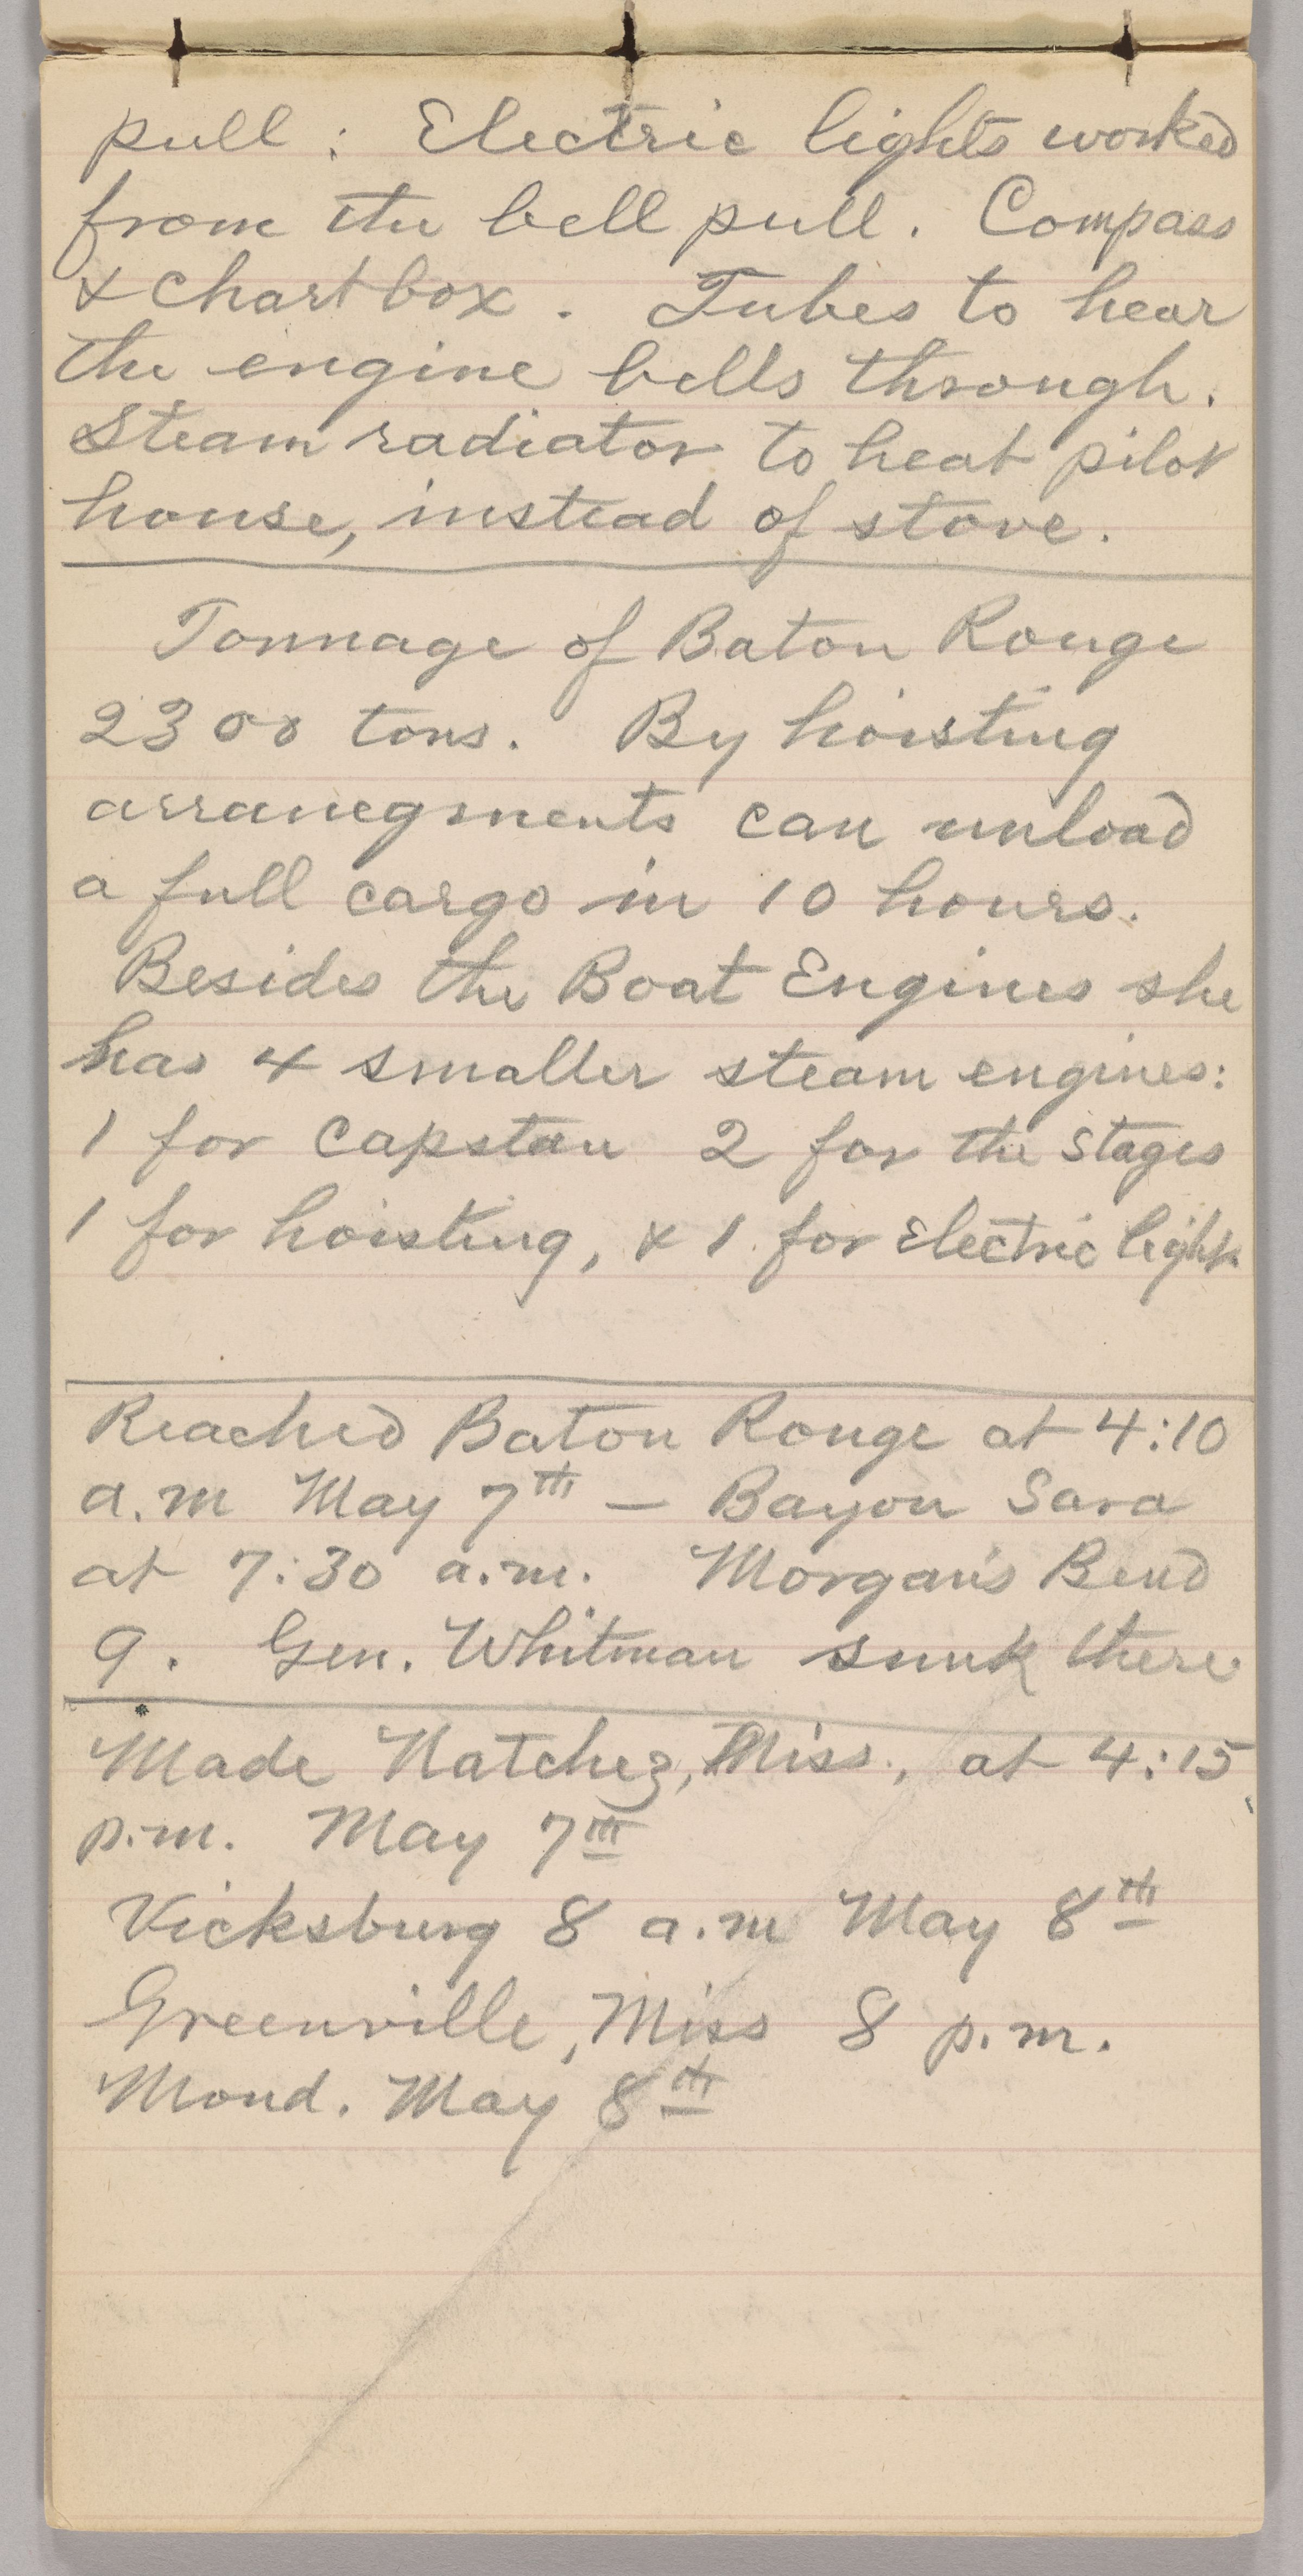 pull : Electric lights worked
from the bell pull. Compass
& chart box. Tubes to hear
the engine bells through.
Steam radiator to heat pilot
house, instead of stove.
Tonnage of Baton Rouge
2300 tons. By hoisting
arranegments can unload
a full cargo in 10 hours.
Besides the Boat Engines she
has 4 smaller steam engines:
1 for capstan 2 for the stages
1 for hoisting, & 1 for Electric light.
Reached Baton Rouge at 4:10
a.m May 7th — Bayou Sara
at 7:30 a.m. Morgan's Bend
9. Gen. Whitman sunk there
Made Natchez, Miss., at 4:15
p.m. May 7th
Vicksburg 8 a.m May 8th
Greenville, Miss 8 p.m.
Mond. May 8th